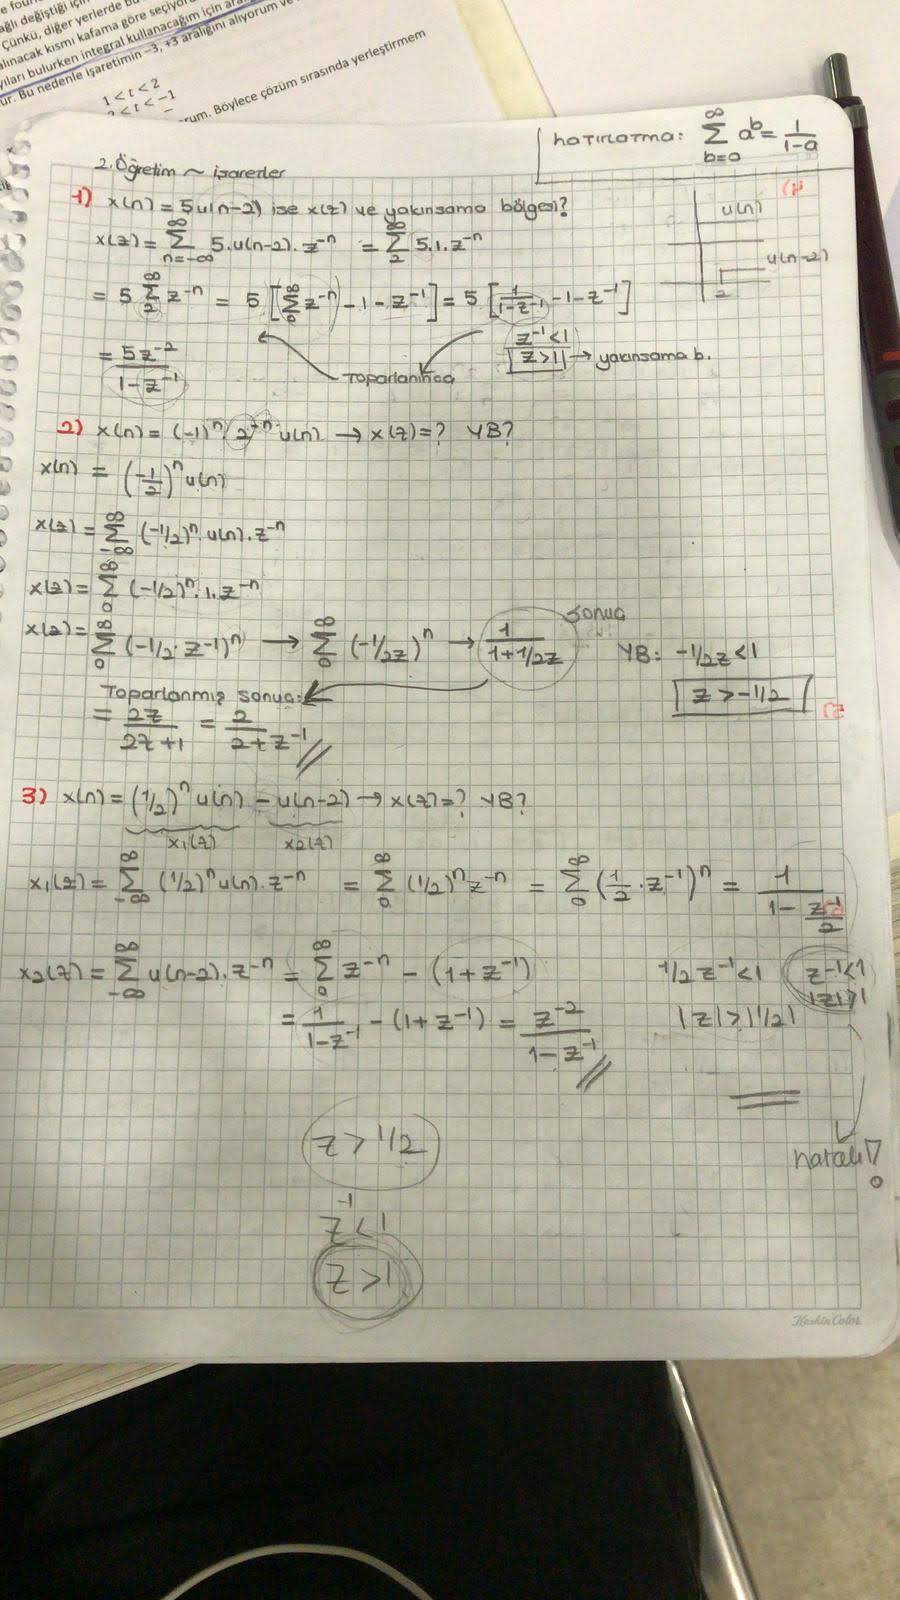 ağlı değiştiği için
Çünkü, diğer yerlerde bu
alınacak kısmı kafama göre seçiyor
yıları bulurken integral kullanacağım için ara
ür. Bu nedenle işaretimin -3, +3 aralığını alıyorum ve
1 < t < 2
< t < -1
rum. Böylece çözüm sırasında yerleştirmem
hatırlatma: ∞∑b=0 a^b = 1/(1-a)
2. Öğretim ~ işaretler
1) x(n) = 5u(n-2) ise x(z) ve yakınsama bölgesi?
x(z) = ∞∑n=-∞ 5.u(n-2).z^-n = ∞∑2 5.1.z^-n
u(n)
u(n-2)
2
= 5 ∞∑2 z^-n = 5 [∞∑0 z^-n - 1 - z^-1] = 5 [1/(1-z^-1) - 1 - z^-1]
z^-1 < 1
z > 1 → yakınsama b.
= 5z^-2/(1-z^-1)
Toparlanınca
2) x(n) = (-1)^n 2^-n u(n) → x(z) = ? YB?
x(n) = (-1/2)^n u(n)
x(z) = ∞∑-∞ (-1/2)^n u(n).z^-n
x(z) = ∞∑0 (-1/2)^n.1.z^-n
x(z) = ∞∑0 (-1/2.z^-1)^n → ∞∑0 (-1/2z)^n → 1/(1+1/2z)
sonuç
YB: -1/2z < 1
z > -1/2
Toparlanmış sonuç:
= 2z/(2z+1) = 2/(2+z^-1)
3) x(n) = (1/2)^n u(n) - u(n-2) → x(z) = ? YB?
x1(z) x2(z)
x1(z) = ∞∑-∞ (1/2)^n u(n).z^-n = ∞∑0 (1/2)^n z^-n = ∞∑0 (1/2.z^-1)^n = 1/(1-z^-1/2)
x2(z) = ∞∑-∞ u(n-2).z^-n = ∞∑0 z^-n - (1+z^-1)
1/2z^-1 < 1 z^-1 < 1
|z| > |1/2| |z| > 1
= 1/(1-z^-1) - (1+z^-1) = z^-2/(1-z^-1)
z > 1/2
hatalı!
z^-1 < 1
z > 1
Keskin Color